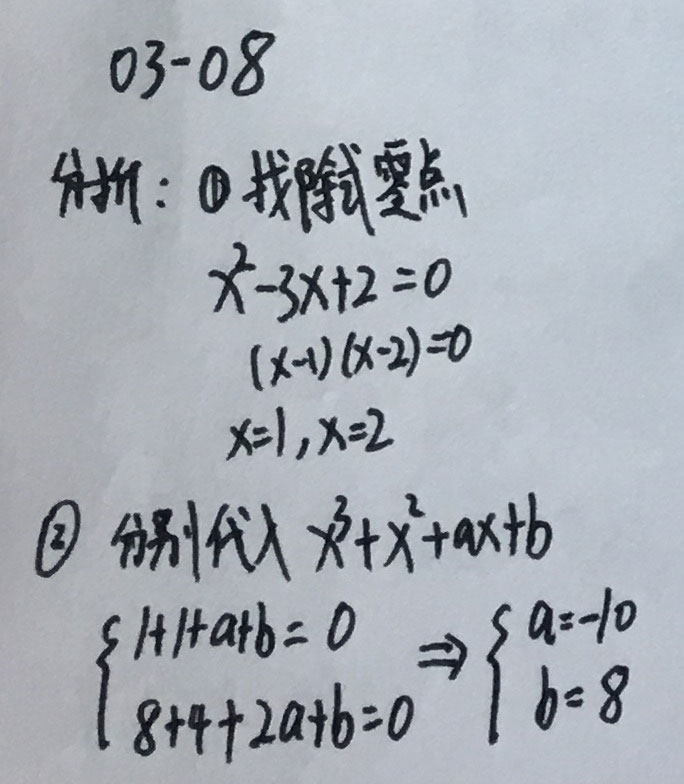 03-08
分析：① 找除式零点
x²-3x+2=0
(x-1)(x-2)=0
x=1,x=2
② 分别代入 x³+x²+ax+b
{1+1+a+b=0 ⇒ {a=-10
8+4+2a+b=0 b=8